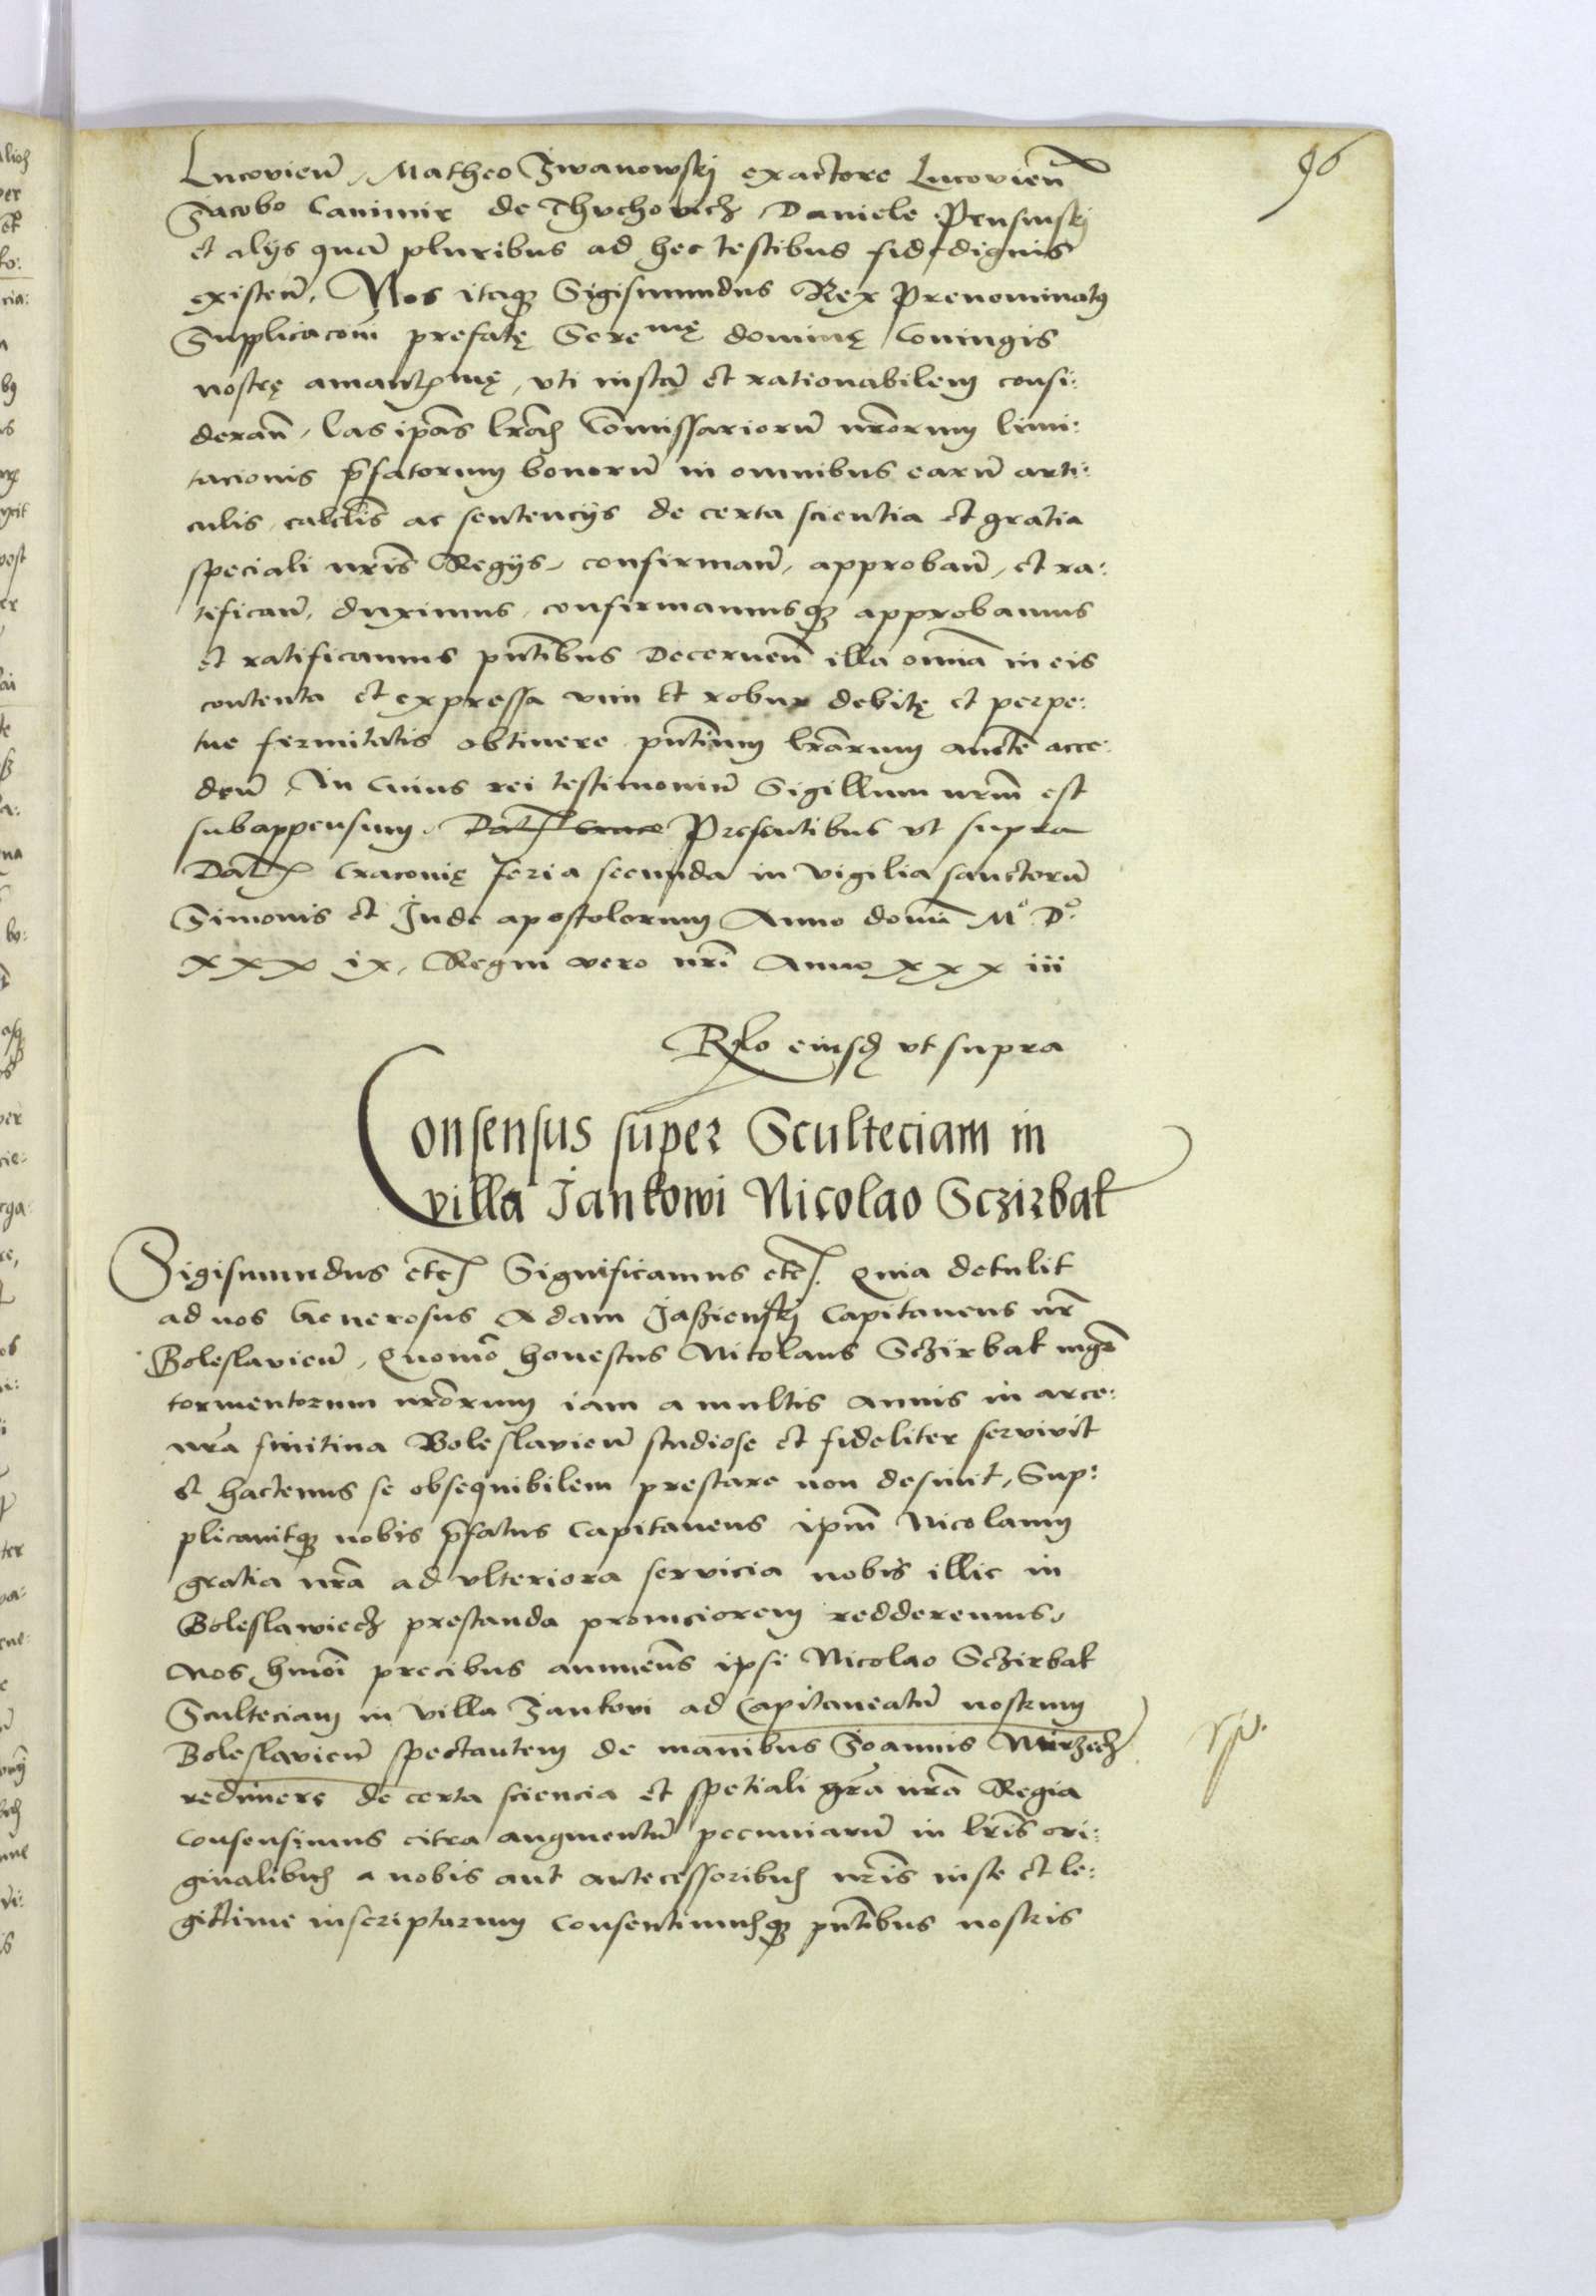 96
Lucovień. Matheo Iwanowskij exactore Lucovień
Jacobo Canimir de Thuchovicz Daniele Prusinskj
et alijs quā pluribus ad hec testibus fide dignis
existeń. Nos itaqꝫ Sigismundus Rex Prenominatꝰ
Supplicacoīm prefatę Sereᵐę dominę Coniugis
nostrę amantᵐę, vti iustā et rationabilem consi:
derań. Las ip̄as lr̄as Commissariorū nr̄orum limi:
tacionis p̄fatorum bonorū in omnibus earū arti:
culis, calclis ac sentencijs de certa scientia et gratia
speciali nr̄is Regijs, confirmań, approbań, et ra:
tificań, duximus, confirmamusqꝫ approbamus
et ratificamus pn̄tibus Decerneń illa omīa in eis
contenta et expressa vim et robur debitę et perpe:
tue fermitatis obtinere pn̄tium lr̄arum aucte acce:
deń In Cuius rei testimoniū Sigillum nrm̄ est
subappensum. Dat Craco Presentibus vt supra
Dat Craconię feria secunda in vigilia sanctorū
Simonis et Jude apostolorum Anno domī Mᵒ Dᵒ
xxx ix, Regni vero nr̄i Anno xxx iii
Rlo eiusd vt supra
Consensus super Scultetiam in
villa Jankowi Nicolao Sczirbak
Sigismundus etc Significamus etc. Quia detulit
ad nos Generosus Adam Jaßienskij Capitaneus nr̄
Boleslavień, Quomō honestus Nicolaus Sczirbak mgr̄
tormentorum nr̄orum iam a multis annis in arce
nr̄a finitina Boleslavień studiose et fideliter servivit
et hactenus se obsequibilem prestare non desinit, Sup:
plicavitqꝫ nobis p̄fatus Capitaneus ipm̄ Nicolaum
gratia nr̄a ad vlteriora servicia nobis illic in
Boleslawiecz prestanda promciorem redderemus,
Nos hmōi precibus annueńs ipsi Nicolao Sczirbak
Scultetiam in villa Jankovi ad Capitaneatū nostrum
Boleslavień spectantem de manibus Joannis Mirzecz
redimere de certa sciencia et spetiali gr̄a nr̄a Regia
Consensimus citra augmentū pecuniarū in lr̄is ori:
ginalibus a nobis aut antecessoribus nr̄is iuste et le:
gittime inscriptarum Consentimusqꝫ pn̄tibus nostris